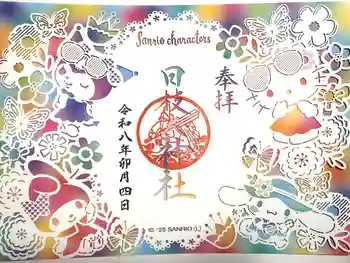 Sanrio characters
奉拝
日枝神社
令和八年卯月四日
© '25 SANRIO (L)